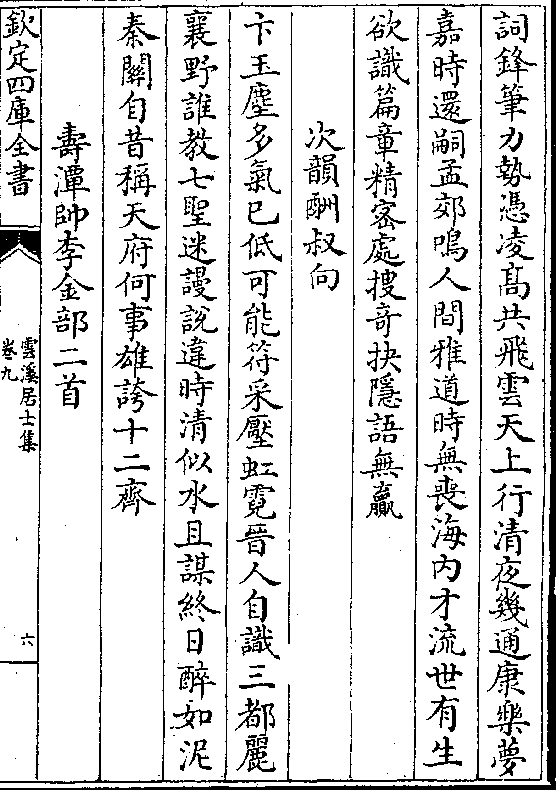 詞鋒筆力勢憑凌髙共飛雲天上行清夜幾通康樂夢
嘉時還嗣孟郊鳴人間雅道時無喪海内才流世有生
欲識篇章精密處搜竒抉隱語無羸
次韻酬叔向
卞玉塵多氣已低可能符采壓虹霓晉人自識三都麗
襄野誰教七聖迷謾說違時清似水且謀終日醉如泥
秦關自昔稱天府何事雄誇十二齊
壽潭帥李金部二首
欽定四庫全書
雲溪居士集
卷九
六